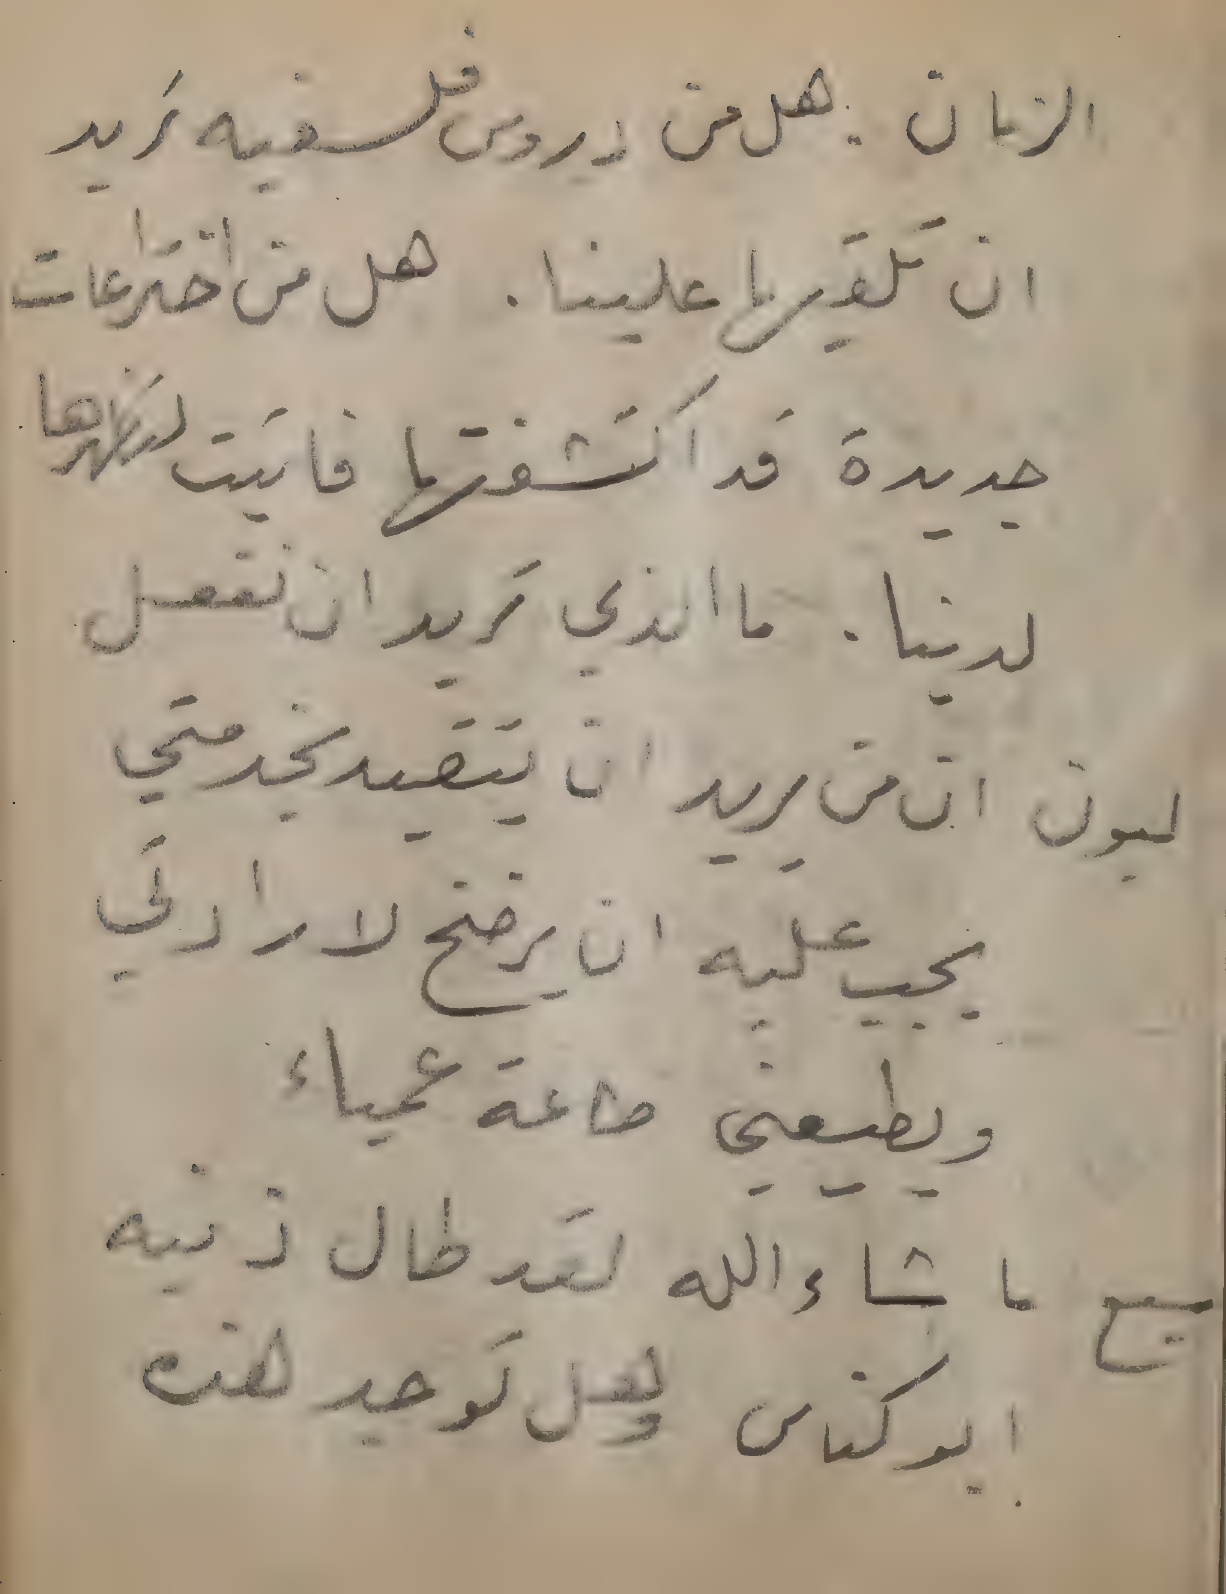 الزمان . هل من دروس فلسفيه تريد
ان تلقيها علينا . هل من اختراعات
جديدة قد اكتشفتها فاتيت لتظهرها
لدينا . ما الذي تريد ان نفعل
ليون ان من يريد ان يتقيد بخدمتي
يجب عليه ان يرضخ لارادتي
ويطيعني طاعة عمياء
سميع ما شاء الله لقد طال ذنبه
ابو كناس وهل توجد هذه